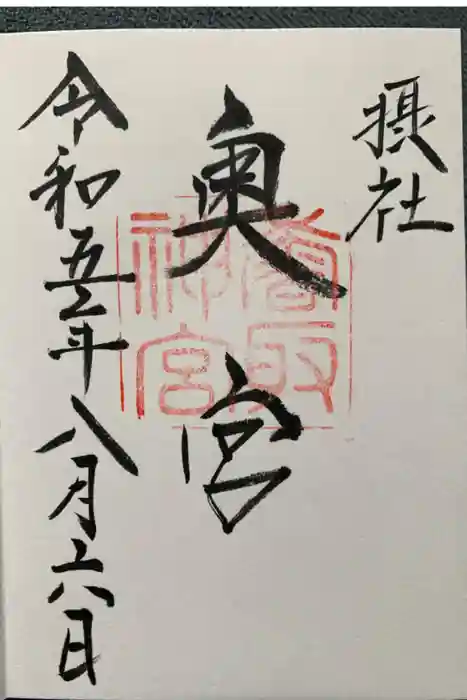 摂社
奥宮
香取
神宮
令和五年八月六日